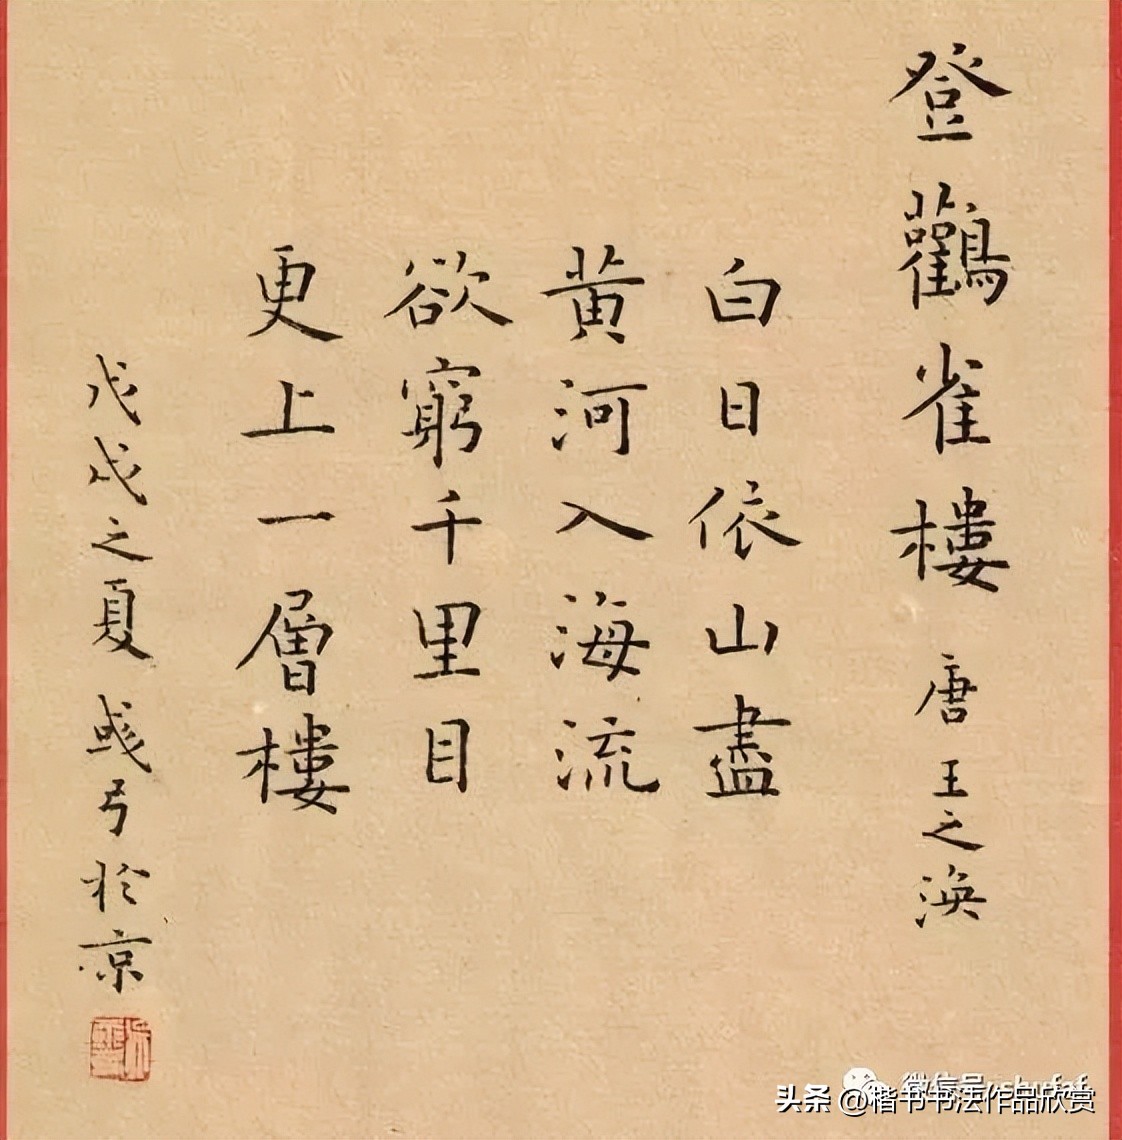 登鸛雀樓 唐 王之渙
白日依山盡
黄河入海流
欲窮千里目
更上一層樓
戊戌之夏 彧弓於京
微信号
头条 @楷书书法作品欣赏